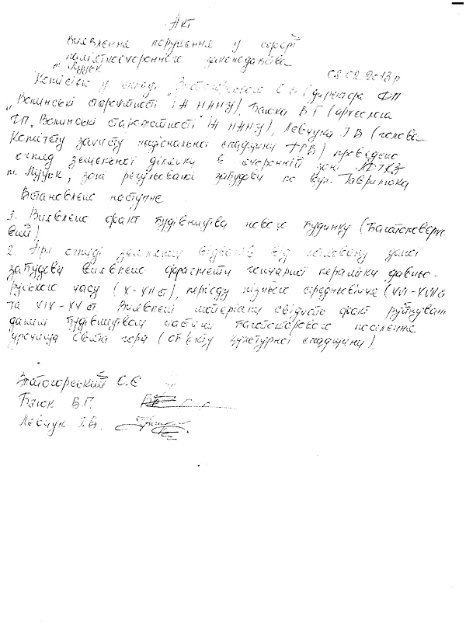 Акт
виявлення порушення у сфері
пам'яткоохоронного законодавства
м. Луцьк 08.02.2013р
Комісією у складі Златогорського С Є (директора ДП
"Волинські старожитності ІА НАНУ), Баюка В Г (археолога
ДП "Волинські старожитності ІА НАНУ), Левчука І В (голова
Комітету захисту національної спадщини проведено
огляд земельної ділянки в охоронній зоні
м. Луцьк, зона регульованої забудови по вул. Гаврилюка
Встановлено наступне
1. Виявлено факт будівництва нового будинку (Багатоповерх
вий)
2. При огляді земляних відвалів від котловану зони
забудови виявлено фрагменти гончарної кераміки давньо-
руського часу (X-XIII ст), періоду пізнього середньовіччя (XVI-XVII ст
та XIV-XV ст Виявлені матеріали свідчать факт руйнуван
даним будівництвом частини багатошарового поселення
урочища Свята гора (об'єкту культурної спадщини)
Златогорський С.Є
Баюк В.Г.
Левчук І.В.